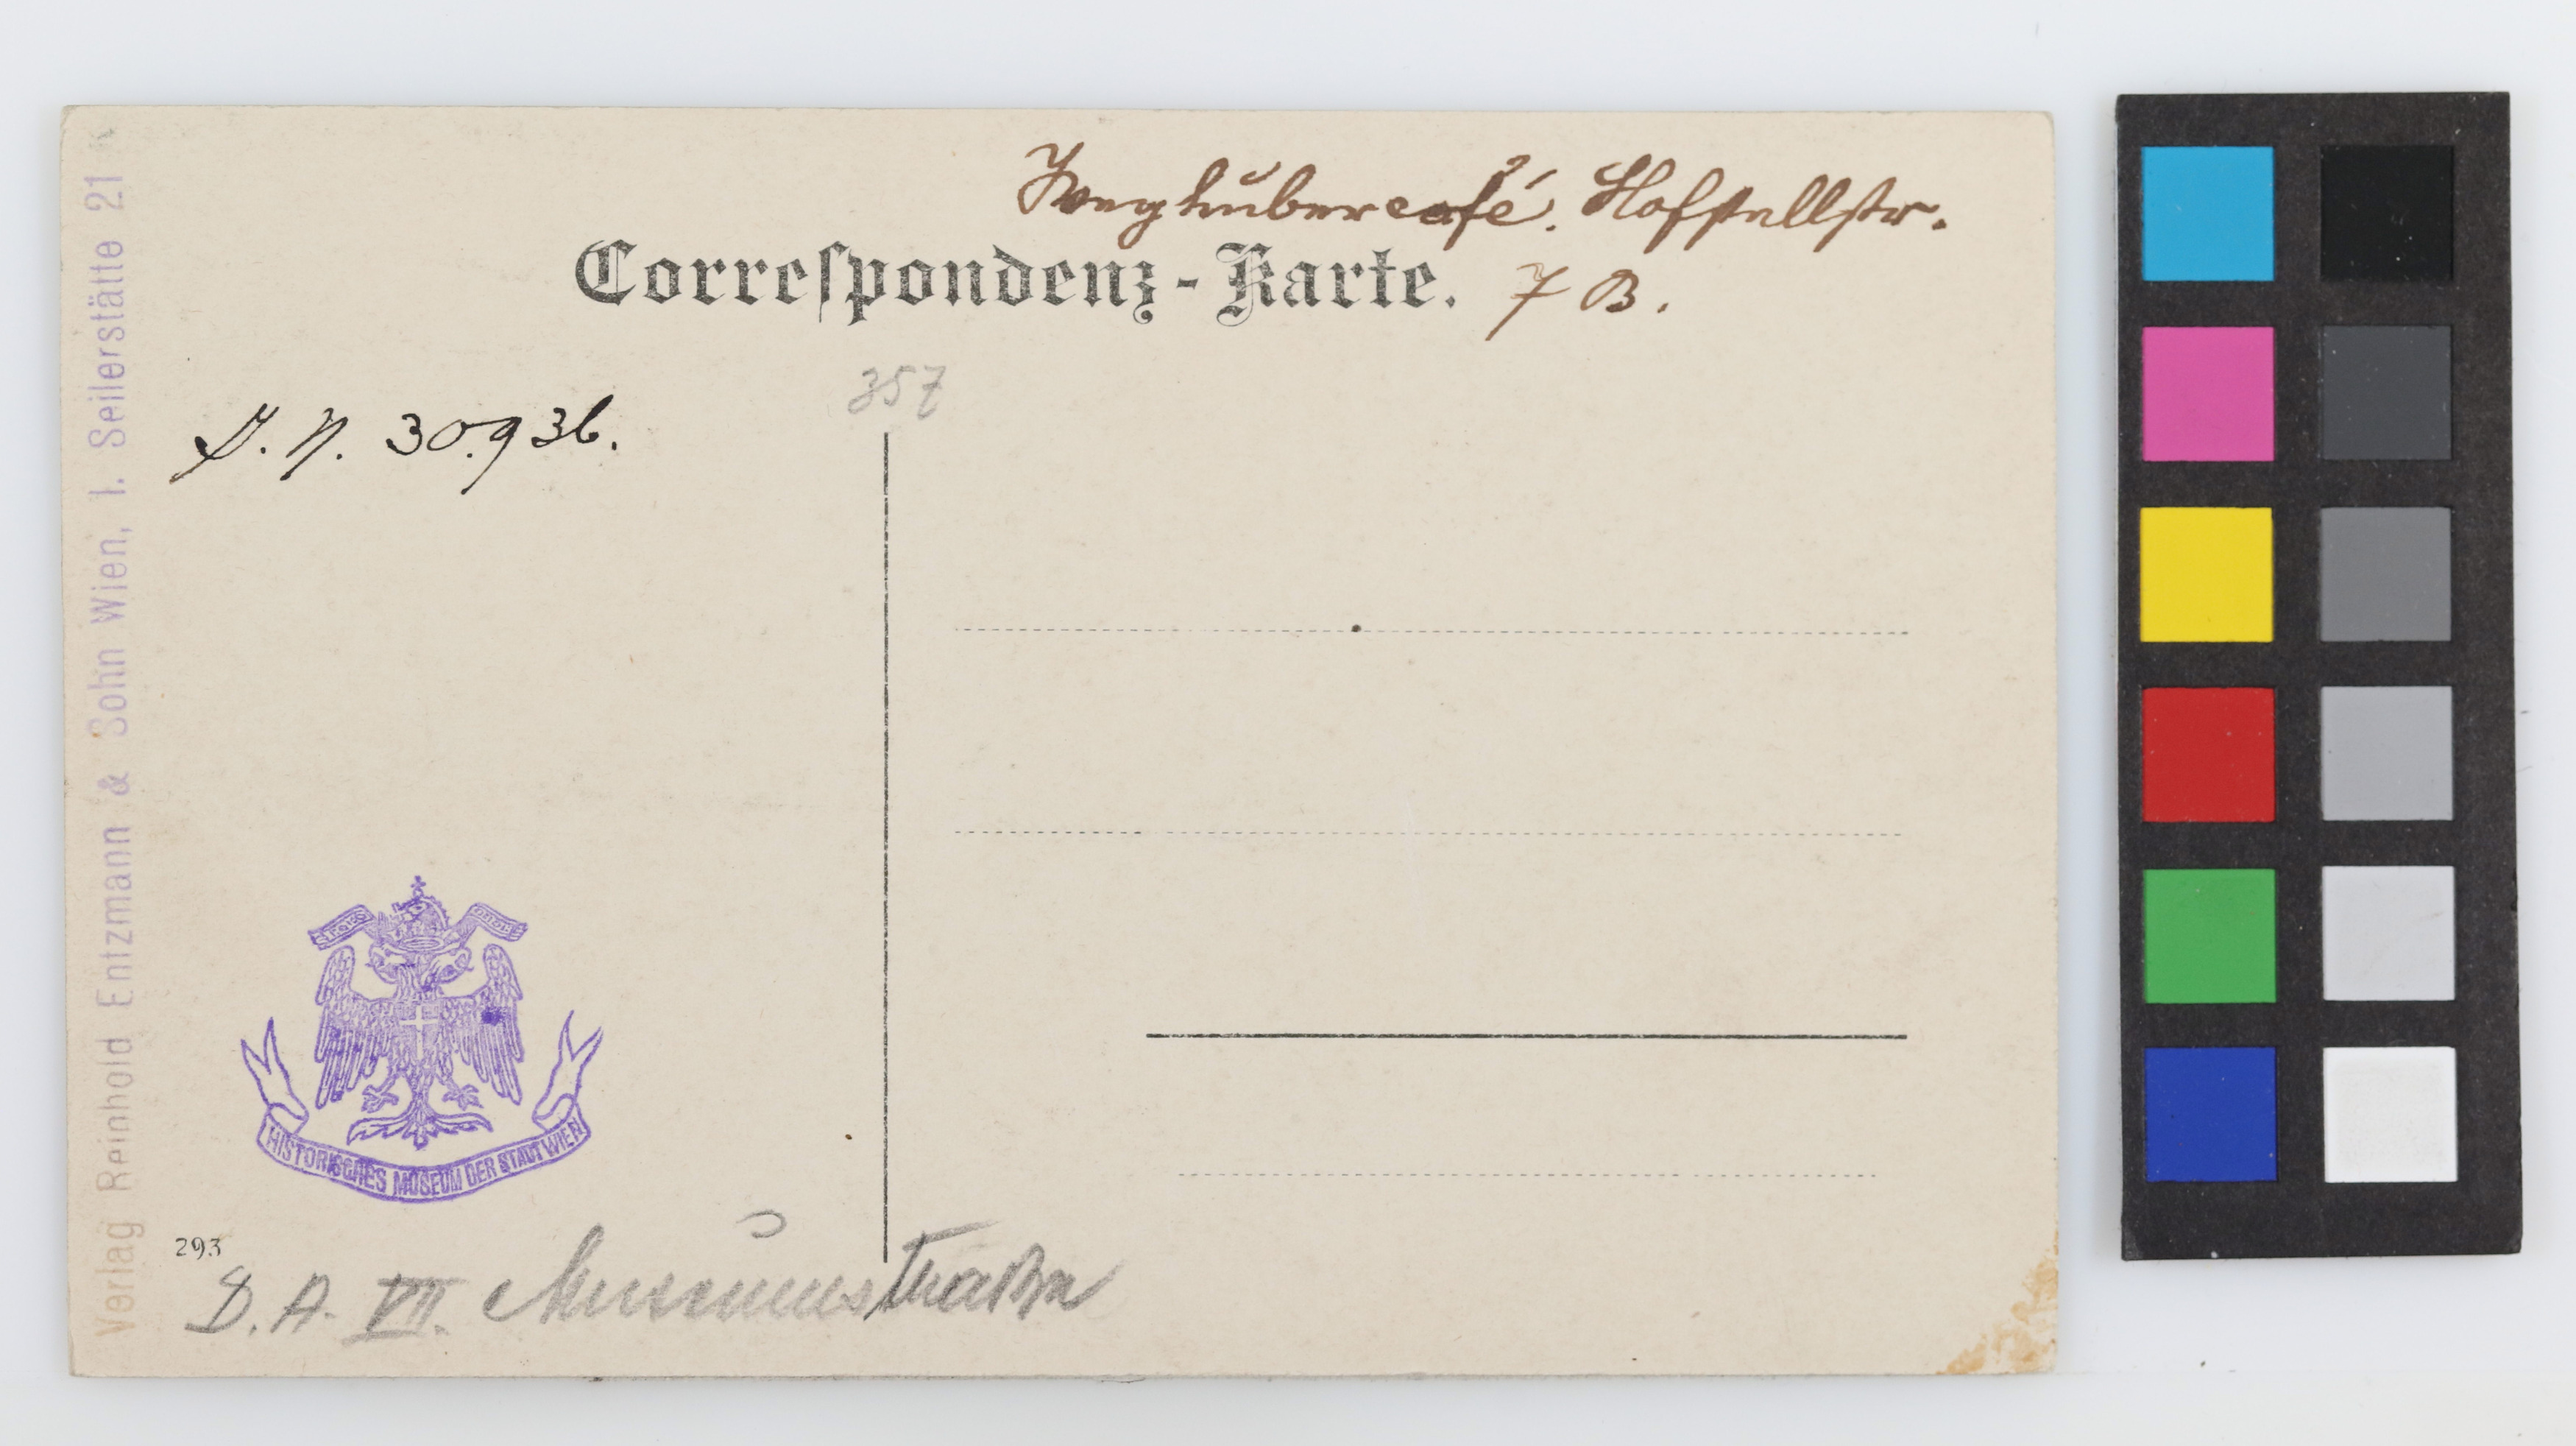 Weghubercafé. Hofstallstr.
Correſpondenz-Karte. 7 B.
357
J. N. 30.936.
HISTORISCHES MUSEUM DER STADT WIEN
293
D. A. VII. Museumstraße
Verlag Reinhold Entzmann & Sohn Wien, I. Seilerstätte 21